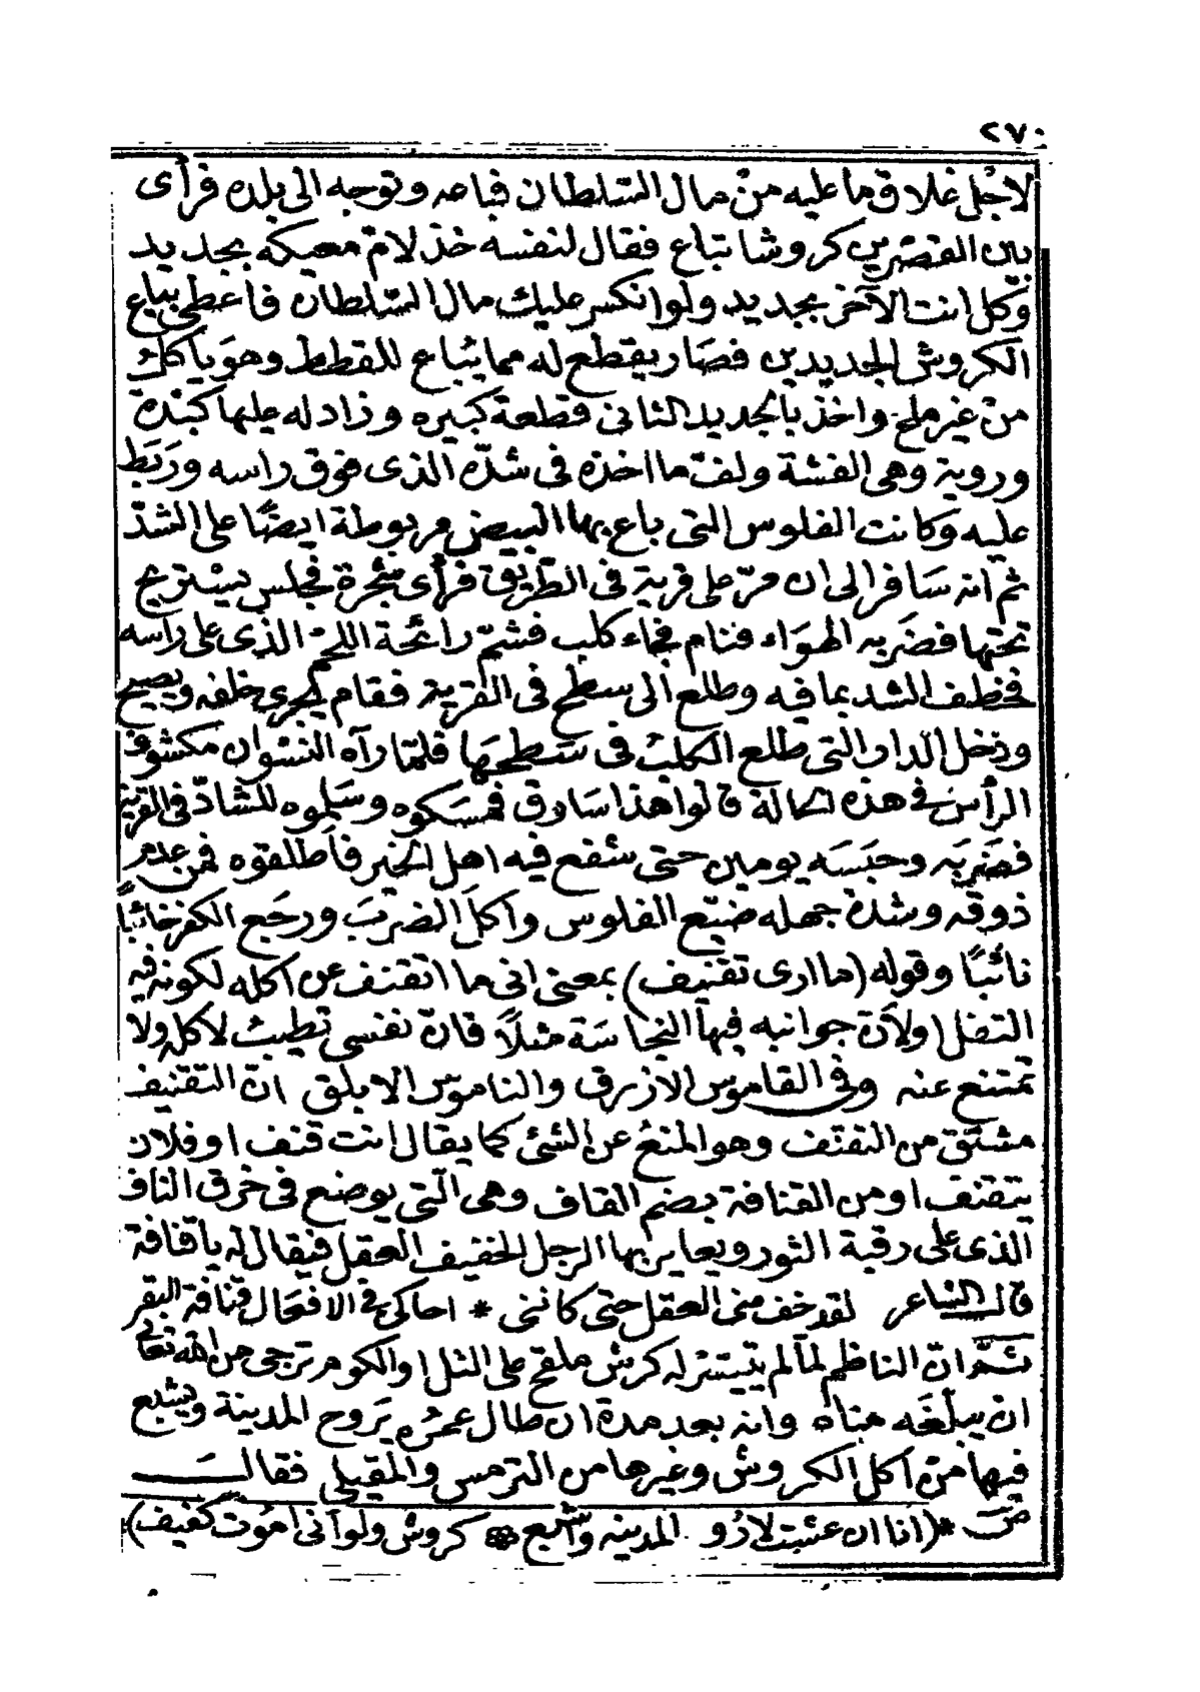 ٢٧٠
لاجل غلاق ما عليه من مال السّلطان فباعه وتوجه الى بلده فرأى
بين القصرين كروشا تباع فقال لنفسه خذ لامّ معيكه بجديد
وكل انت الآخر بجديد ولو انكسر عليك مال السّلطان فاعطى بياع
الكروش الجديدين فصَار يقطع له مما يُباع للقطط وهوَ ياكلُ
من غير ملح واخذ بالجديد الثانى قطعة كبيره وزاد له عليها كبْدة
وروية وهى الفشة ولفّ ما اخذه فى شدّه الذى فوق راسه ورَبَط
عليه وكانت الفلوس التى باع بها البيض مربوطة ايضًا على الشدّ
ثم انه سَافر الى ان مرّ على قرية فى الطّريق فرأى شجرة فجلس يسْتريح
تحتها فضَربه الهوَاء فنام فجاء كلب فشمّ رائحة اللحمْ الذى على راسه
فخطف الشد بما فيه وطلع الى سطح فى القرية فقام يجرى خلفه ويصيح
ودخل الدار التى طلع الكلبُ فى سَطحهَا فلمّا رآه النسْوان مكشوف
الرأسْ فى هذه الحالة قالوا هذا سَارق فمسَكوه وسَلموه للشادّ فى القرية
فضَربَه وحبَسَه يومين حتى شفع فيه اهل الخير فأطلقوه فمن عدم
ذوقه وشدة جهله ضيّع الفلوس وأكلَ الضربَ ورجَع الكفر خائبًا
نائبًا وقوله (ما ارى تقنيف) بمعنى انى ما اتقنف عن اكله لكونه فيه
التفل اولأنّ جوانبه فيها النجاسَة مثلًا فانّ نفسى تطيبُ لاكله ولا
تمتنع عنه وفى القاموس الازرق والناموس الابلق انّ التقنيف
مشتق من التقنّف وهو المنعُ عن الشئ كما يقال انت قنف او فلان
يتقنف او من القنافة بضم القاف وهى الّتى يوضع فى خرق الناف
الذى على رقبة الثور ويعاير بها الرجل الخفيف العقل فيقال له يا قنافة
قال الشاعر لقد خف منى العقل حتى كاننى * احاكى فى الافعَال قنافة البقر
ثمّ انّ الناظم لمّا لم يتيسّر له كرش ملقح على التل او الكوم ترجى من الله تعالى
ان يبلّغَه مناه وانه بعد مدة ان طال عمُره يَروح المدينة ويشبع
فيها منْ أكل الكروش وغيرها من الترمس والمقيلى فقالَ
صَ *(انا ان عشت لارُو المدينه واشبع * كروش ولو انى اموت كفيف)